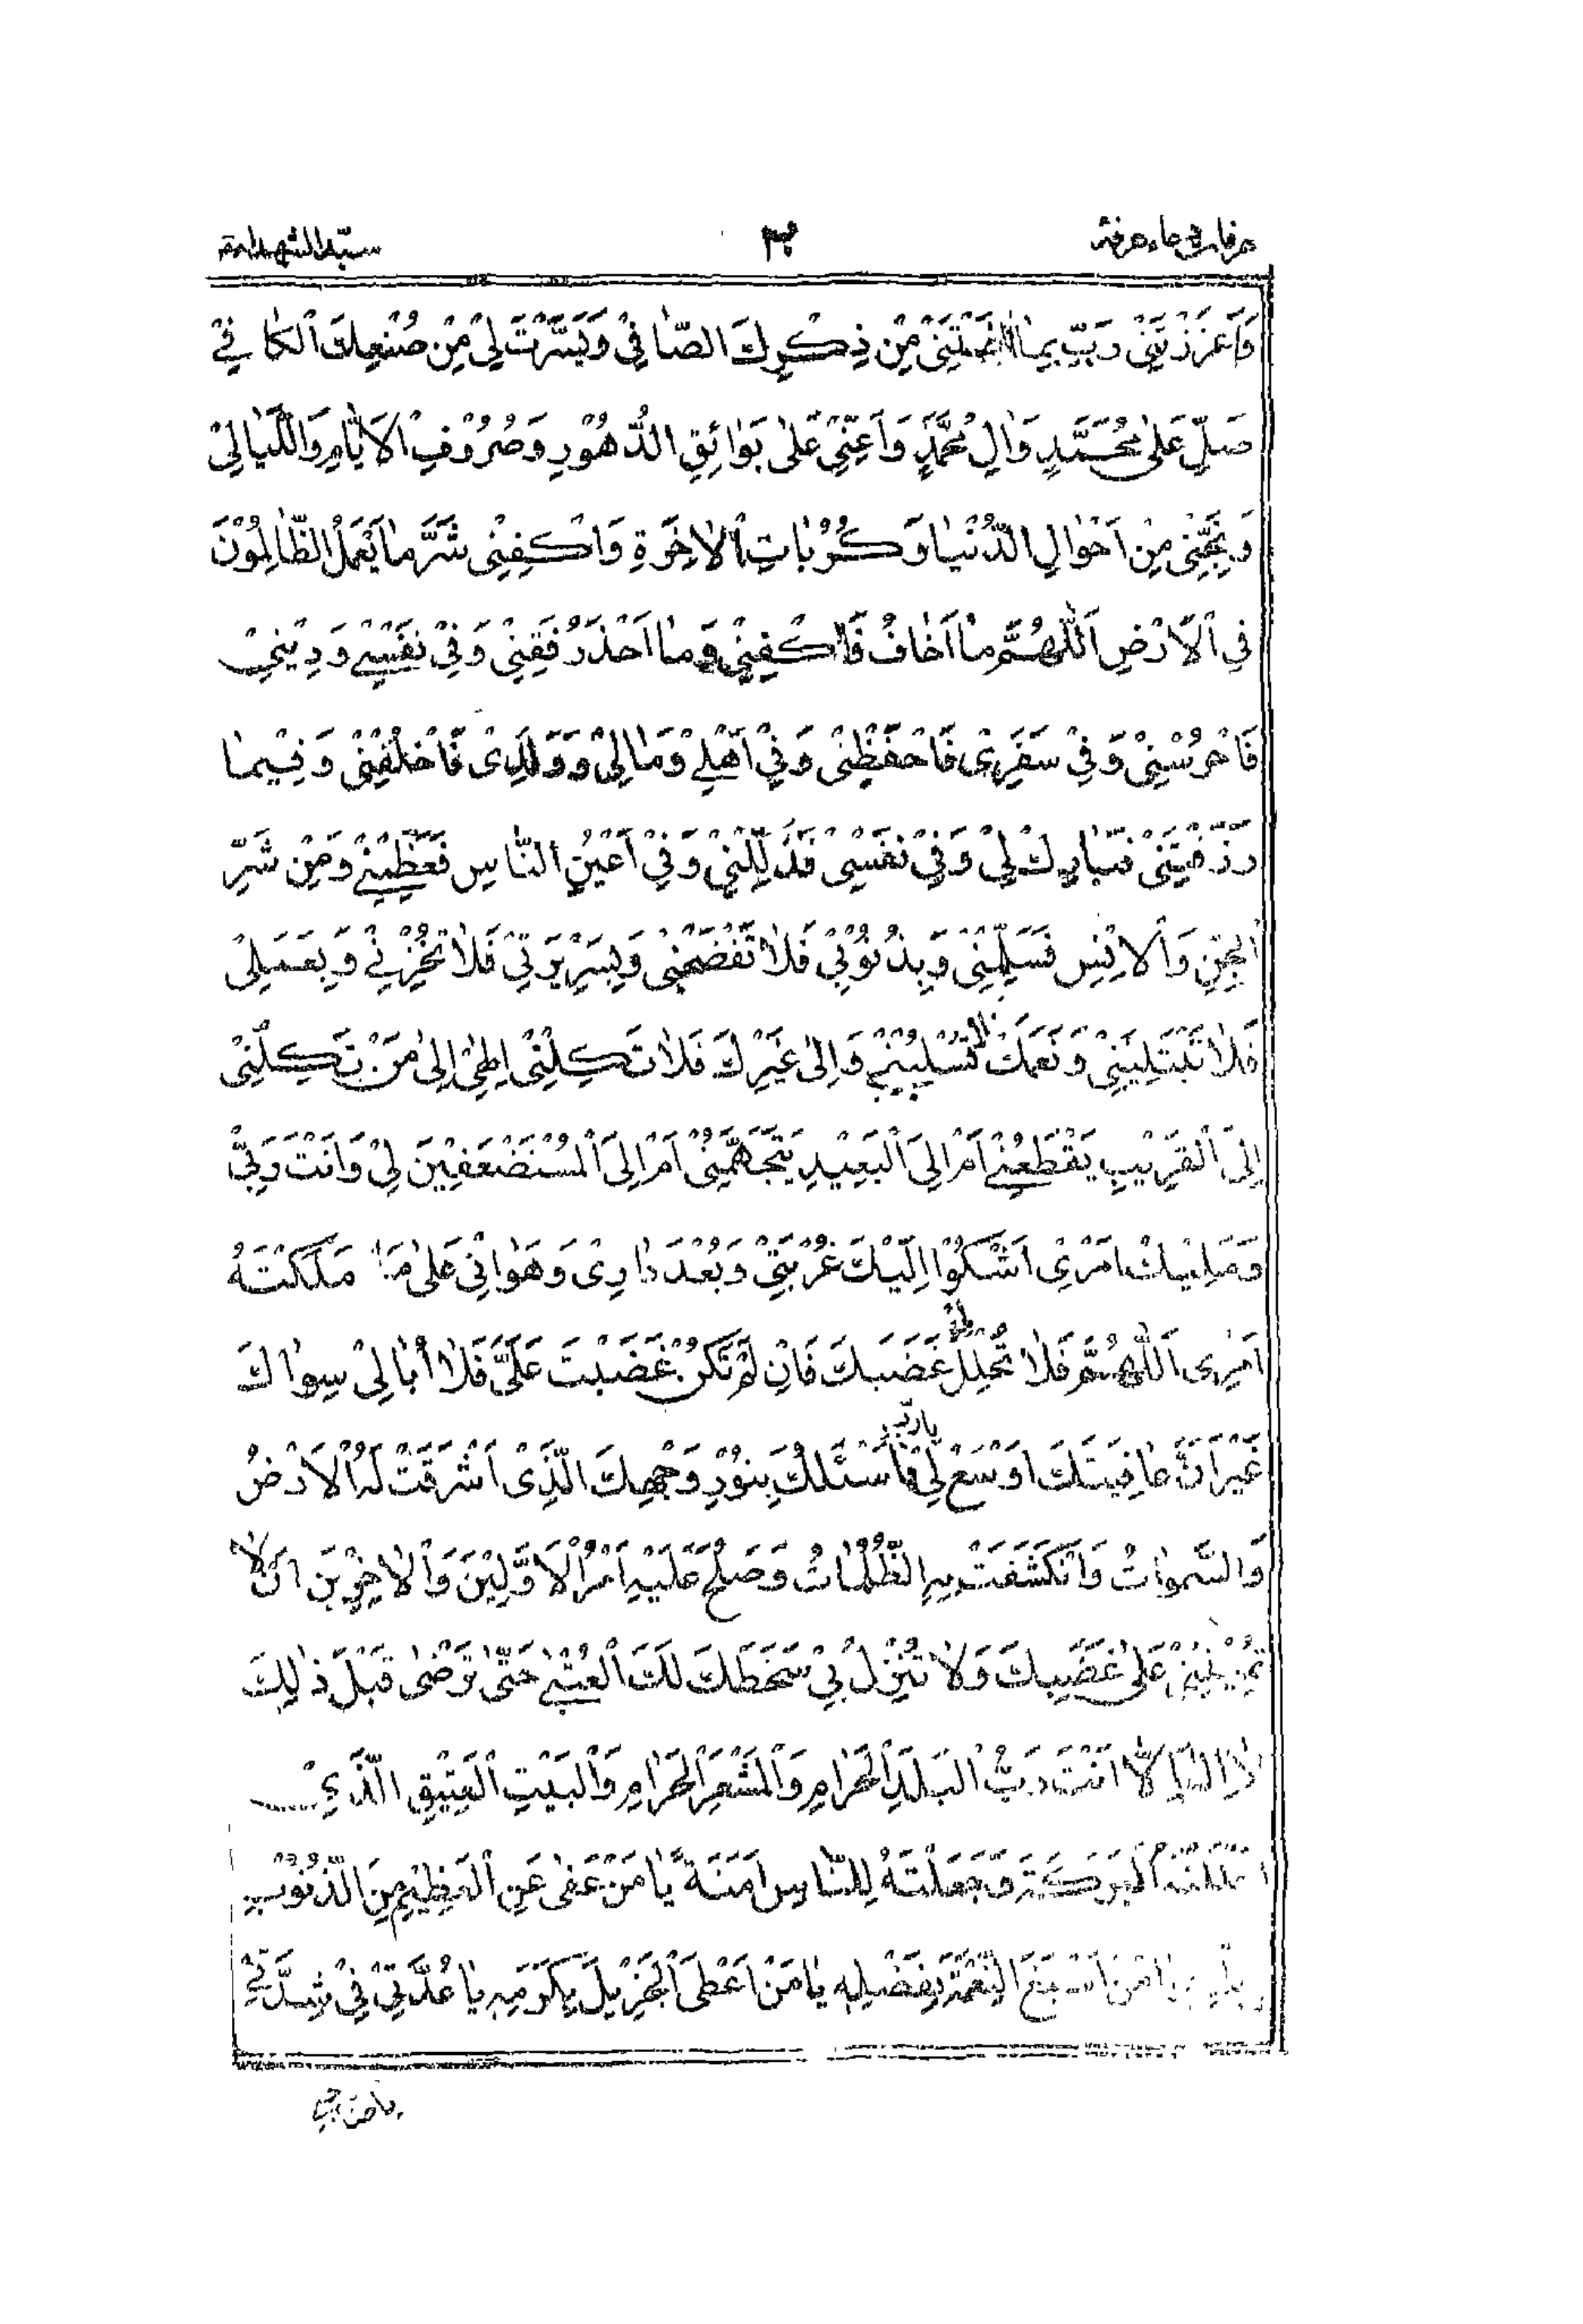 سیّد الشهداء
وَاَعْزَزْتَنِيْ رَبِّ بِمٰا مِنْ ذِكْرِكَ الصّٰافِيْ وَيَسَّرْتَ لِيْ مِنْ صُنْعِكَ اَلْكٰافِيْ
صَلِّ عَلىٰ مُحَمَّدٍ وَاٰلِ مُحَمَّدٍ وَاَعِنِّيْ عَلىٰ بَوٰائِقِ الدُّهُوْرِ وَصُرُوْفِ الْاَيّٰامِ وَاللَّيٰالِيْ
وَنَجِّنِيْ مِنْ اَحْوٰالِ الدُّنْيٰا وَكُرُبٰاتِ الْاٰخِرَةِ وَاكْفِنِيْ شَرَّ مٰا يَعْمَلُ الظّٰالِمُوْنَ
فِي الْاَرْضِ اَللّٰهُمَّ مٰا اَخٰافُ فَاكْفِنِيْ وَمٰا اَحْذَرُ فَقِنِيْ وَفِيْ نَفْسِيْ وَدِيْنِيْ
فَاحْرُسْنِيْ وَفِيْ سَفَرِيْ فَاحْفَظْنِيْ وَفِيْ اَهْلِيْ وَمٰالِيْ وَوَلَدِيْ فَاخْلُفْنِيْ وَفِيْمٰا
رَزَقْتَنِيْ فَبٰارِكْ لِيْ وَفِيْ نَفْسِيْ فَذَلِّلْنِيْ وَفِيْ اَعْيُنِ النّٰاسِ فَعَظِّمْنِيْ وَمِنْ شَرِّ
الْجِنِّ وَالْاِنْسِ فَسَلِّمْنِيْ وَبِذُنُوْبِيْ فَلٰا تَفْضَحْنِيْ وَبِسَرِيْرَتِيْ فَلٰا تُخْزِنِيْ وَبِعَمَلِيْ
فَلٰا تَبْتَلِيَنِيْ وَنِعَمَكَ فَلٰا تَسْلُبْنِيْ وَاِلىٰ غَيْرِكَ فَلٰا تَكِلْنِيْ اِلٰهِيْ اِلىٰ مَنْ تَكِلُنِيْ
اِلَى الْقَرِيْبِ يَقْطَعُنِيْ اَمْ اِلَى الْبَعِيْدِ يَتَجَهَّمُنِيْ اَمْ اِلَى الْمُسْتَضْعَفِيْنَ لِيْ وَاَنْتَ رَبِّيْ
وَمَلِيْكُ اَمْرِيْ اَشْكُوْا اِلَيْكَ غُرْبَتِيْ وَبُعْدَ دٰارِيْ وَهَوٰانِيْ عَلىٰ مَنْ مَلَّكْتَهُ
اَمْرِيْ اَللّٰهُمَّ فَلٰا تُحْلِلْ غَضَبَكَ فَاِنْ لَمْ تَكُنْ غَضَبْتَ عَلَيَّ فَلٰا اُبٰالِيْ سِوٰاكَ
يٰا رَبِّ
غَيْرَ اَنَّ عٰافِيَتَكَ اَوْسَعُ لِيْ فَاَسْئَلُكَ بِنُوْرِ وَجْهِكَ الَّذِيْ اَشْرَقَتْ لَهُ الْاَرْضُ
وَالسَّمٰوٰاتُ وَانْكَشَفَتْ بِهِ الظُّلُمٰاتُ وَصَلُحَ عَلَيْهِ اَمْرُ الْاَوَّلِيْنَ وَالْاٰخِرِيْنَ اَنْ لٰا
تُمِيْتَنِيْ عَلىٰ غَضَبِكَ وَلٰا تُنْزِلْ بِيْ سَخَطَكَ لَكَ الْعُتْبىٰ حَتّىٰ تَرْضىٰ قَبْلَ ذٰلِكَ
لٰا اِلٰهَ اِلّٰا اَنْتَ رَبُّ الْبَلَدِ الْحَرٰامِ وَالْمَشْعَرِ الْحَرٰامِ وَالْبَيْتِ الْعَتِيْقِ الَّذِيْ
الْبَرَكَةَ وَجَعَلْتَهُ لِلنّٰاسِ اَمَنَةً يٰا مَنْ عَفىٰ عَنِ الْعَظِيْمِ مِنَ الذُّنُوْبِ
مَنْ اَسْبَغَ النِّعْمَةَ بِفَضْلِهِ يٰا مَنْ اَعْطَى الْجَزِيْلَ بِكَرَمِهِ يٰا عُدَّتِيْ فِيْ شِدَّتِيْ